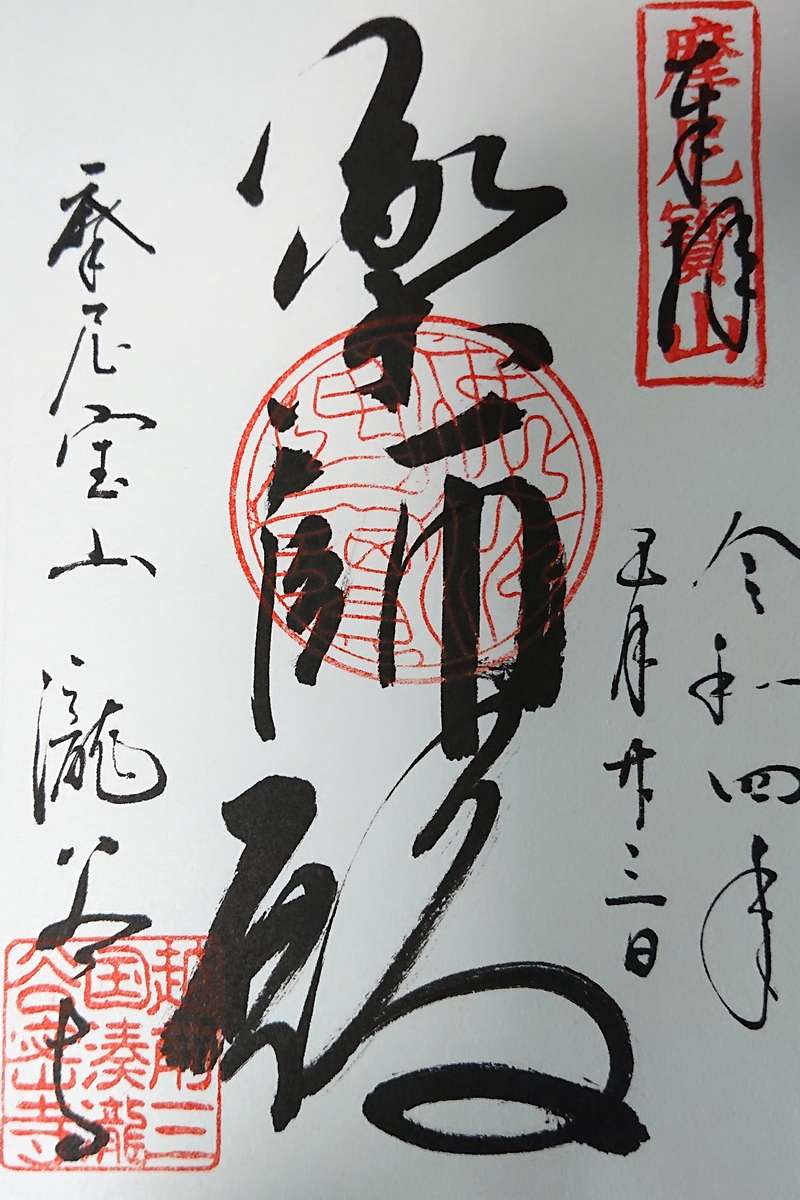 摩尼寶山
奉拝
令和四年
五月廿三日
薬師殿
摩尼宝山 瀧谷寺
越前三
国湊瀧
谷寺